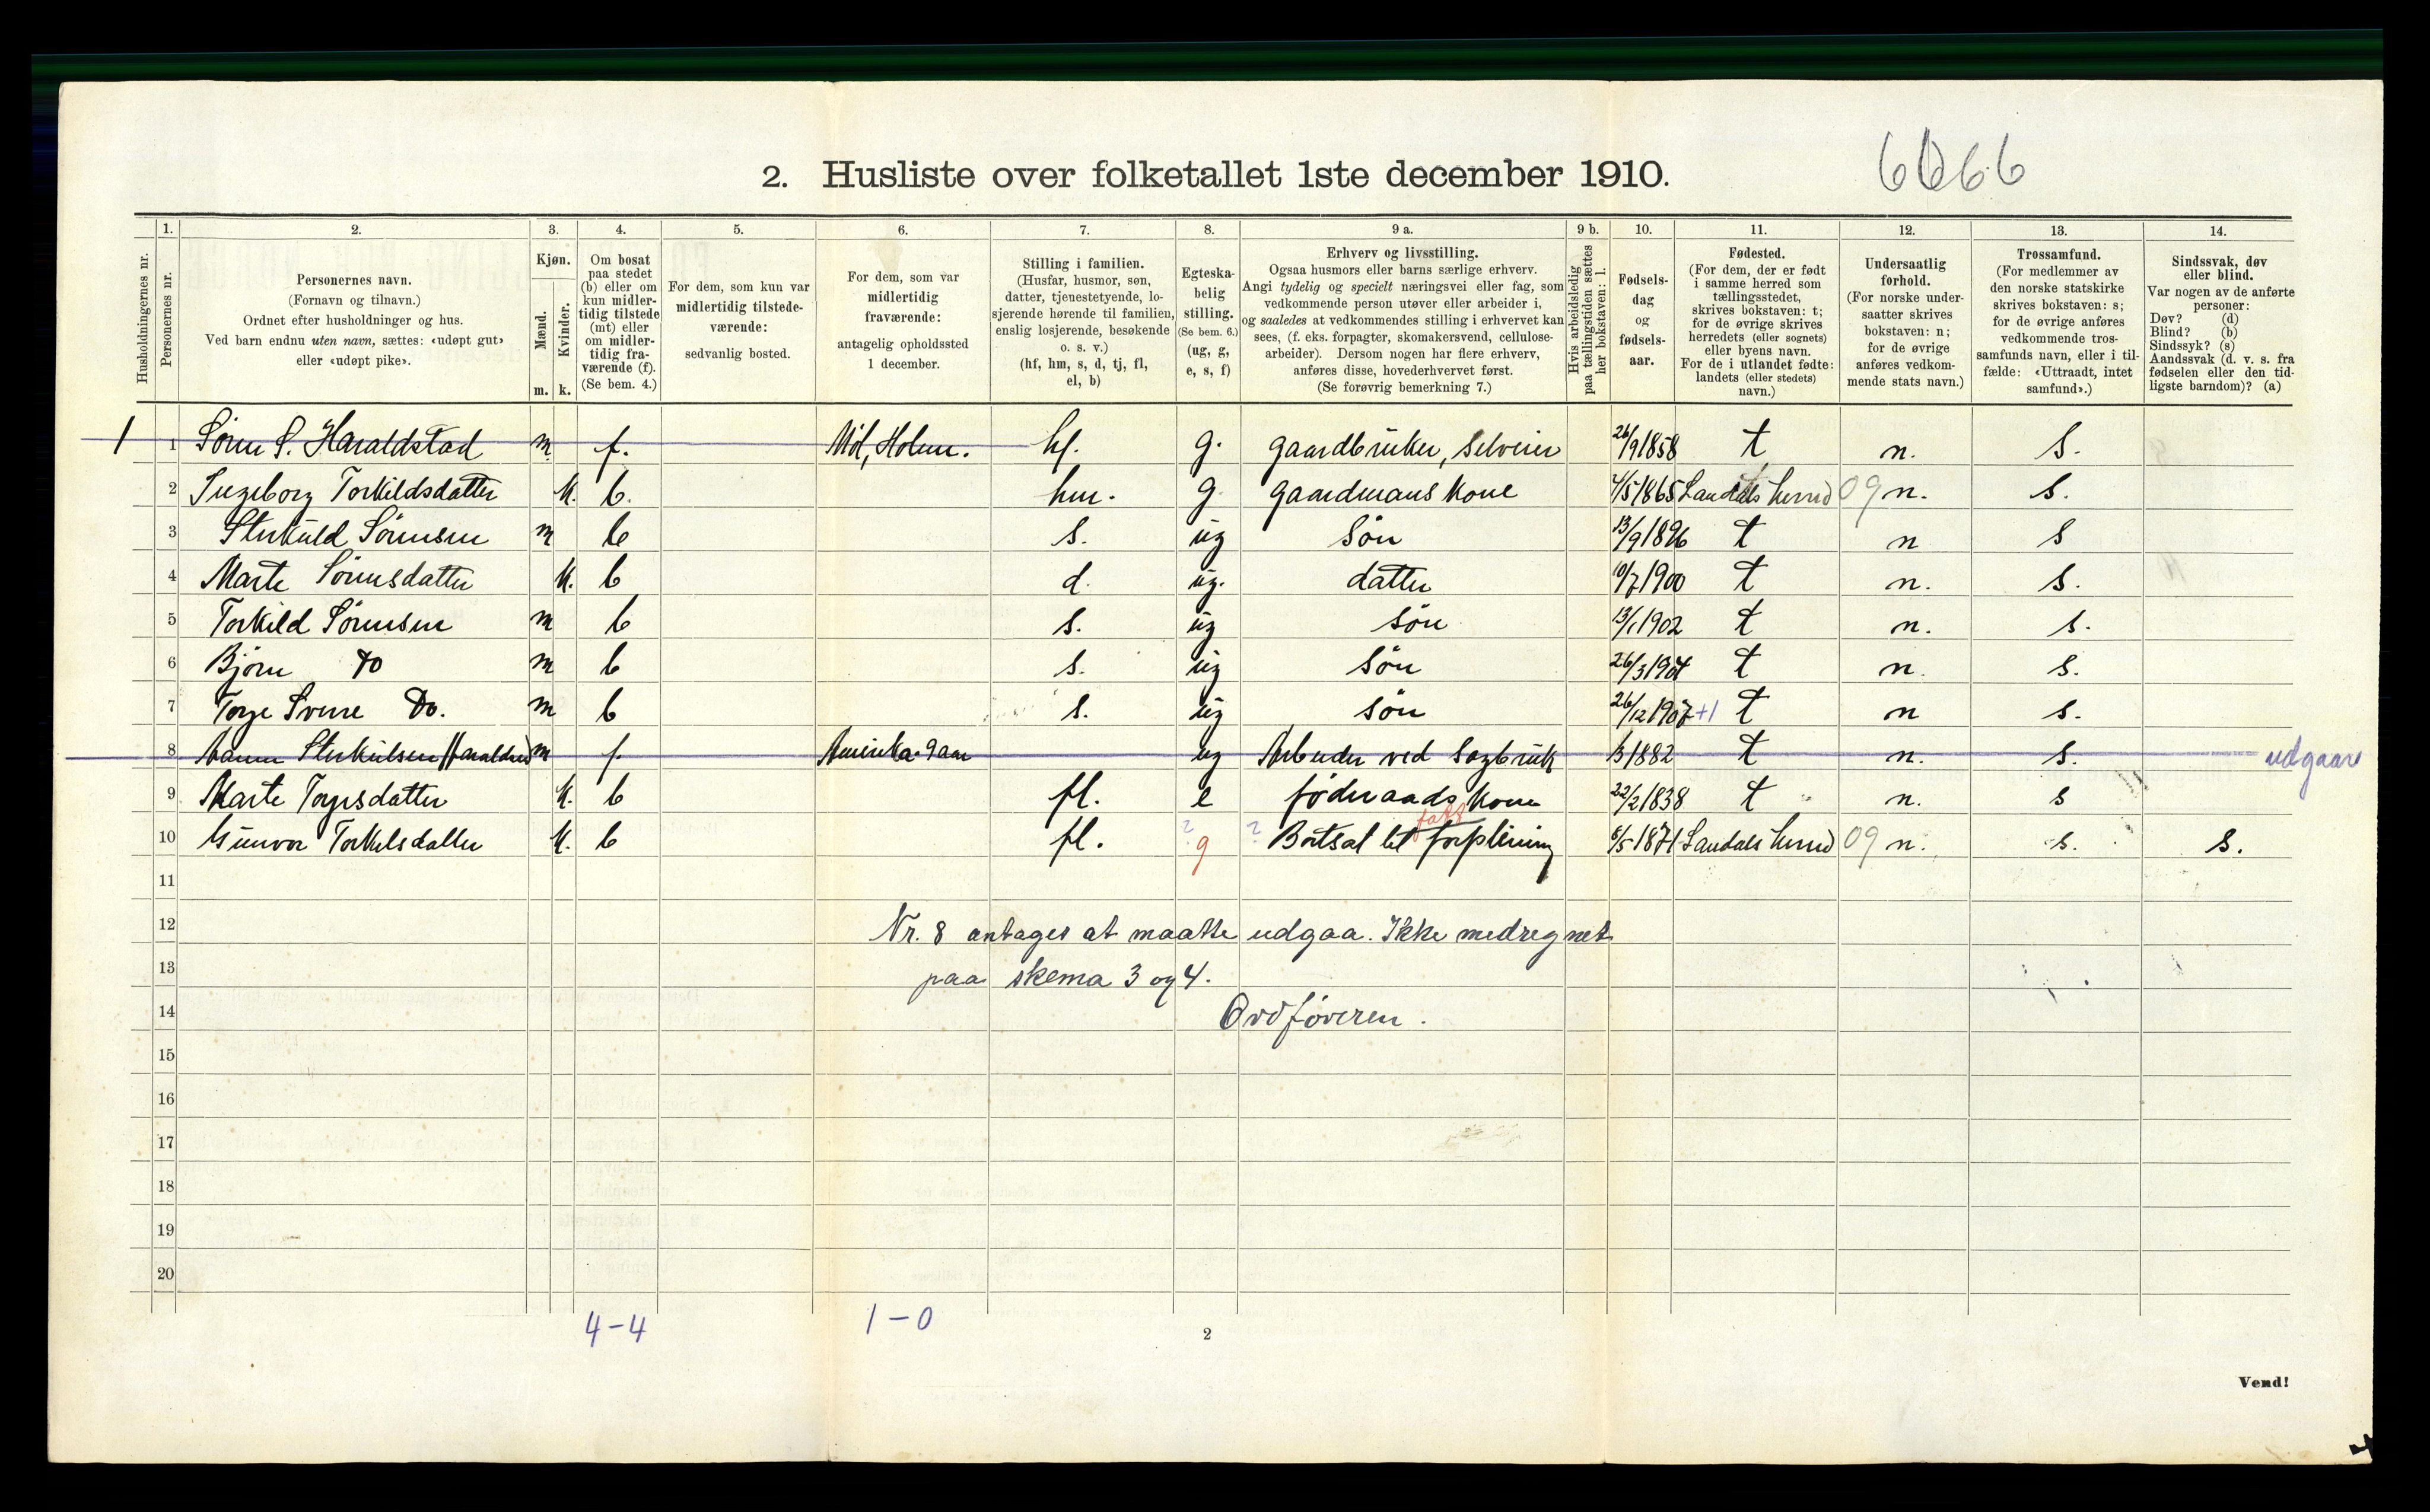 6066
2. Husliste over folketallet 1ste december 1910.
Husholdningernes nr.
1. Personernes nr.
2. Personernes navn.
(Fornavn og tilnavn.)
Ordnet efter husholdninger og hus.
Ved barn endnu uten navn, sættes: «udøpt gut»
eller «udøpt pike».
3. Kjøn.
Mænd. m.
Kvinder. k.
4. Om bosat
paa stedet
(b) eller om
kun midler-
tidig tilstede
(mt) eller
om midler-
tidig fra-
værende (f).
(Se bem. 4.)
5. For dem, som kun var
midlertidig tilstede-
værende:
sedvanlig bosted.
6. For dem, som var
midlertidig
fraværende:
antagelig opholdssted
1 december.
7. Stilling i familien.
(Husfar, husmor, søn,
datter, tjenestetyende, lo-
sjerende hørende til familien,
enslig losjerende, besøkende
o. s. v.)
(hf, hm, s, d, tj, fl,
el, b)
8. Egteska-
belig
stilling.
(Se bem. 6.)
(ug, g,
e, s, f)
9 a. Erhverv og livsstilling.
Ogsaa husmors eller barns særlige erhverv.
Angi tydelig og specielt næringsvei eller fag, som
vedkommende person utøver eller arbeider i,
og saaledes at vedkommendes stilling i erhvervet kan
sees, (f. eks. forpagter, skomakersvend, cellulose-
arbeider). Dersom nogen har flere erhverv,
anføres disse, hovederhvervet først.
(Se forøvrig bemerkning 7.)
9 b. Hvis arbeidsledig
paa tællingstiden sættes
her bokstaven: l.
10. Fødsels-
dag
og
fødsels-
aar.
11. Fødested.
(For dem, der er født
i samme herred som
tællingsstedet,
skrives bokstaven: t;
for de øvrige skrives
herredets (eller sognets)
eller byens navn.
For de i utlandet fødte:
landets (eller stedets)
navn.)
12. Undersaatlig
forhold.
(For norske under-
saatter skrives
bokstaven: n;
for de øvrige
anføres vedkom-
mende stats navn.)
13. Trossamfund.
(For medlemmer av
den norske statskirke
skrives bokstaven: s;
for de øvrige anføres
vedkommende tros-
samfunds navn, eller i til-
fælde: «Uttraadt, intet
samfund».)
14. Sindssvak, døv
eller blind.
Var nogen av de anførte
personer:
Døv? (d)
Blind? (b)
Sindssyk? (s)
Aandssvak (d. v. s. fra
fødselen eller den tid-
ligste barndom)? (a)
1 1 Søren S. Haraldstad m f. Möl, Holum. hf. g. gaardbruker, selveier 26/9 1858 t n. s.
2 Ingeborg Torkildsdatter k. b. hm. g gaardmans kone 7/5 1865 Laudals herred 09 n. s.
3 Sterkuld Sörensen m b s. ug Sön 13/9 1896 t n s
4 Marte Sörensdatter k. b d. ug. datter 10/7 1900 t n. s.
5 Torkild Sörensen m b s. ug sön 13/1 1902 t n. s.
6 Björn Do m b s. ug sön 26/3 1904 t n. s.
7 Torje Sverre Do. m b s. ug sön 26/12 1907 +1 t n s.
8 Sterkulsen Haraldstad m f. Amerika 9 aar ug Arbeider ved Sagbruk 1882 t n. s. udgaar
9 Marte Torjesdatter k. b fl. e föderaads kone 22/2 1838 t n. s
10 Gunvor Torkelsdatter k. b fl. ? g ? Bortsat til fatt forpleining 8/5 1871 Laudals herred 09 n. s. s.
11
12 Nr. 8 antages at maatte udgaa. Ikke medregnet
13 paa skema 3 og 4.
14 Ordføreren.
15
16
17
18
19
20
4-4 1-0
2
Vend!